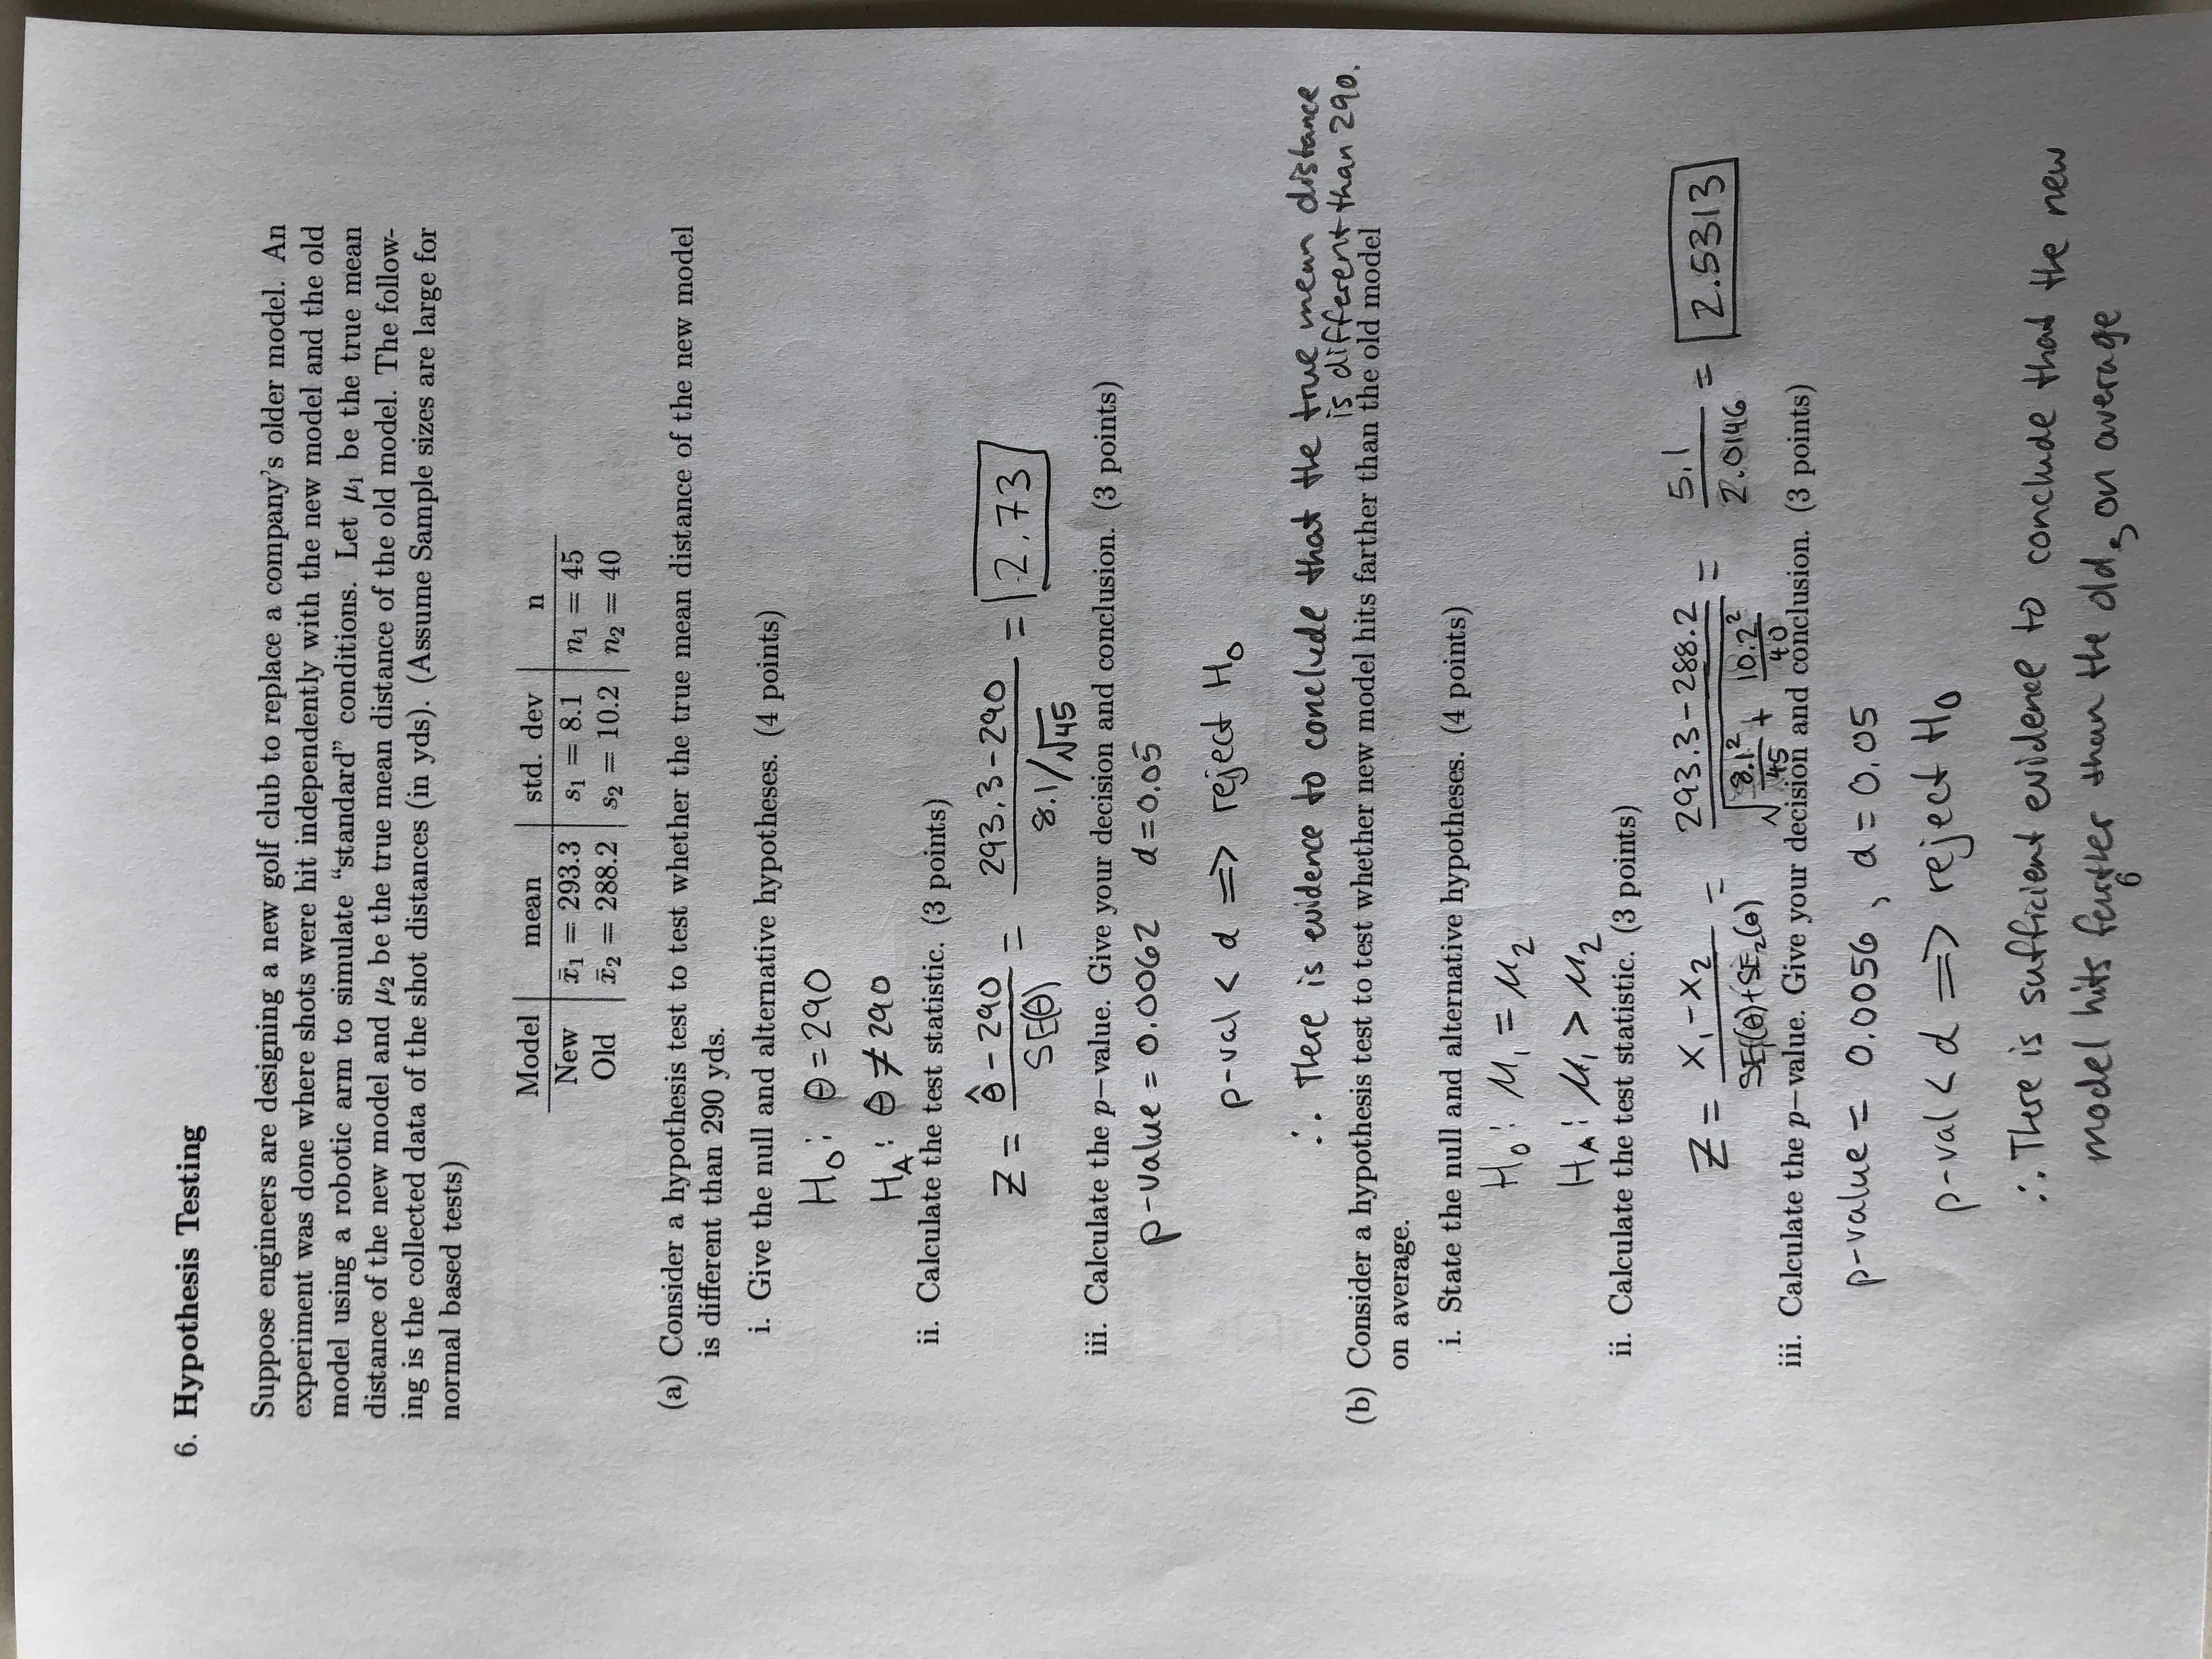 6. Hypothesis Testing
Suppose engineers are designing a new golf club to replace a company's older model. An
experiment was done where shots were hit independently with the new model and the old
model using a robotic arm to simulate “standard” conditions. Let μ₁ be the true mean
distance of the new model and μ₂ be the true mean distance of the old model. The follow-
ing is the collected data of the shot distances (in yds). (Assume Sample sizes are large for
normal based tests)
Model | mean | std. dev | n
New | x̄₁ = 293.3 | s₁ = 8.1 | n₁ = 45
Old | x̄₂ = 288.2 | s₂ = 10.2 | n₂ = 40
(a) Consider a hypothesis test to test whether the true mean distance of the new model
is different than 290 yds.
i. Give the null and alternative hypotheses. (4 points)
H₀: θ = 290
H_A: θ ≠ 290
ii. Calculate the test statistic. (3 points)
Z = (θ̂ - 290)/SE(θ) = (293.3 - 290)/(8.1/√45) = 2.73
iii. Calculate the p−value. Give your decision and conclusion. (3 points)
p-value = 0.0062 α = 0.05
p-val < α => reject H₀
∴ There is evidence to conclude that the true mean distance
is different than 290.
(b) Consider a hypothesis test to test whether new model hits farther than the old model
on average.
i. State the null and alternative hypotheses. (4 points)
H₀: μ₁ = μ₂
H_A: μ₁ > μ₂
ii. Calculate the test statistic. (3 points)
Z = (x₁ - x₂)/(SE₁(θ) + SE₂(θ)) = (293.3 - 288.2)/√(8.1²/45 + 10.2²/40) = 5.1/2.0146 = 2.5313
iii. Calculate the p−value. Give your decision and conclusion. (3 points)
p-value = 0.0056, α = 0.05
p-val < α => reject H₀
∴ There is sufficient evidence to conclude that the new
model hits farther than the old, on average
6